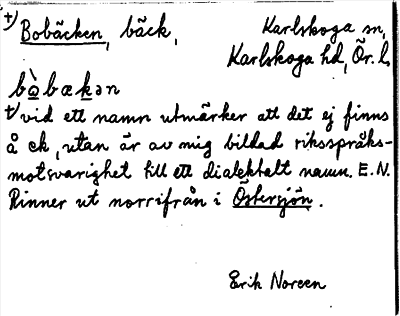 +) Bobäcken, bäck, Karlskoga sn,
Karlskoga hd, Ör. l.
bò̱bæḵən
+) vid ett namn utmärker att det ej finns
å ek, utan är av mig bildad riksspråks-
motsvarighet till ett dialektalt namn. E.N.
Rinner ut norrifrån i Östersjön.
Erik Noreen